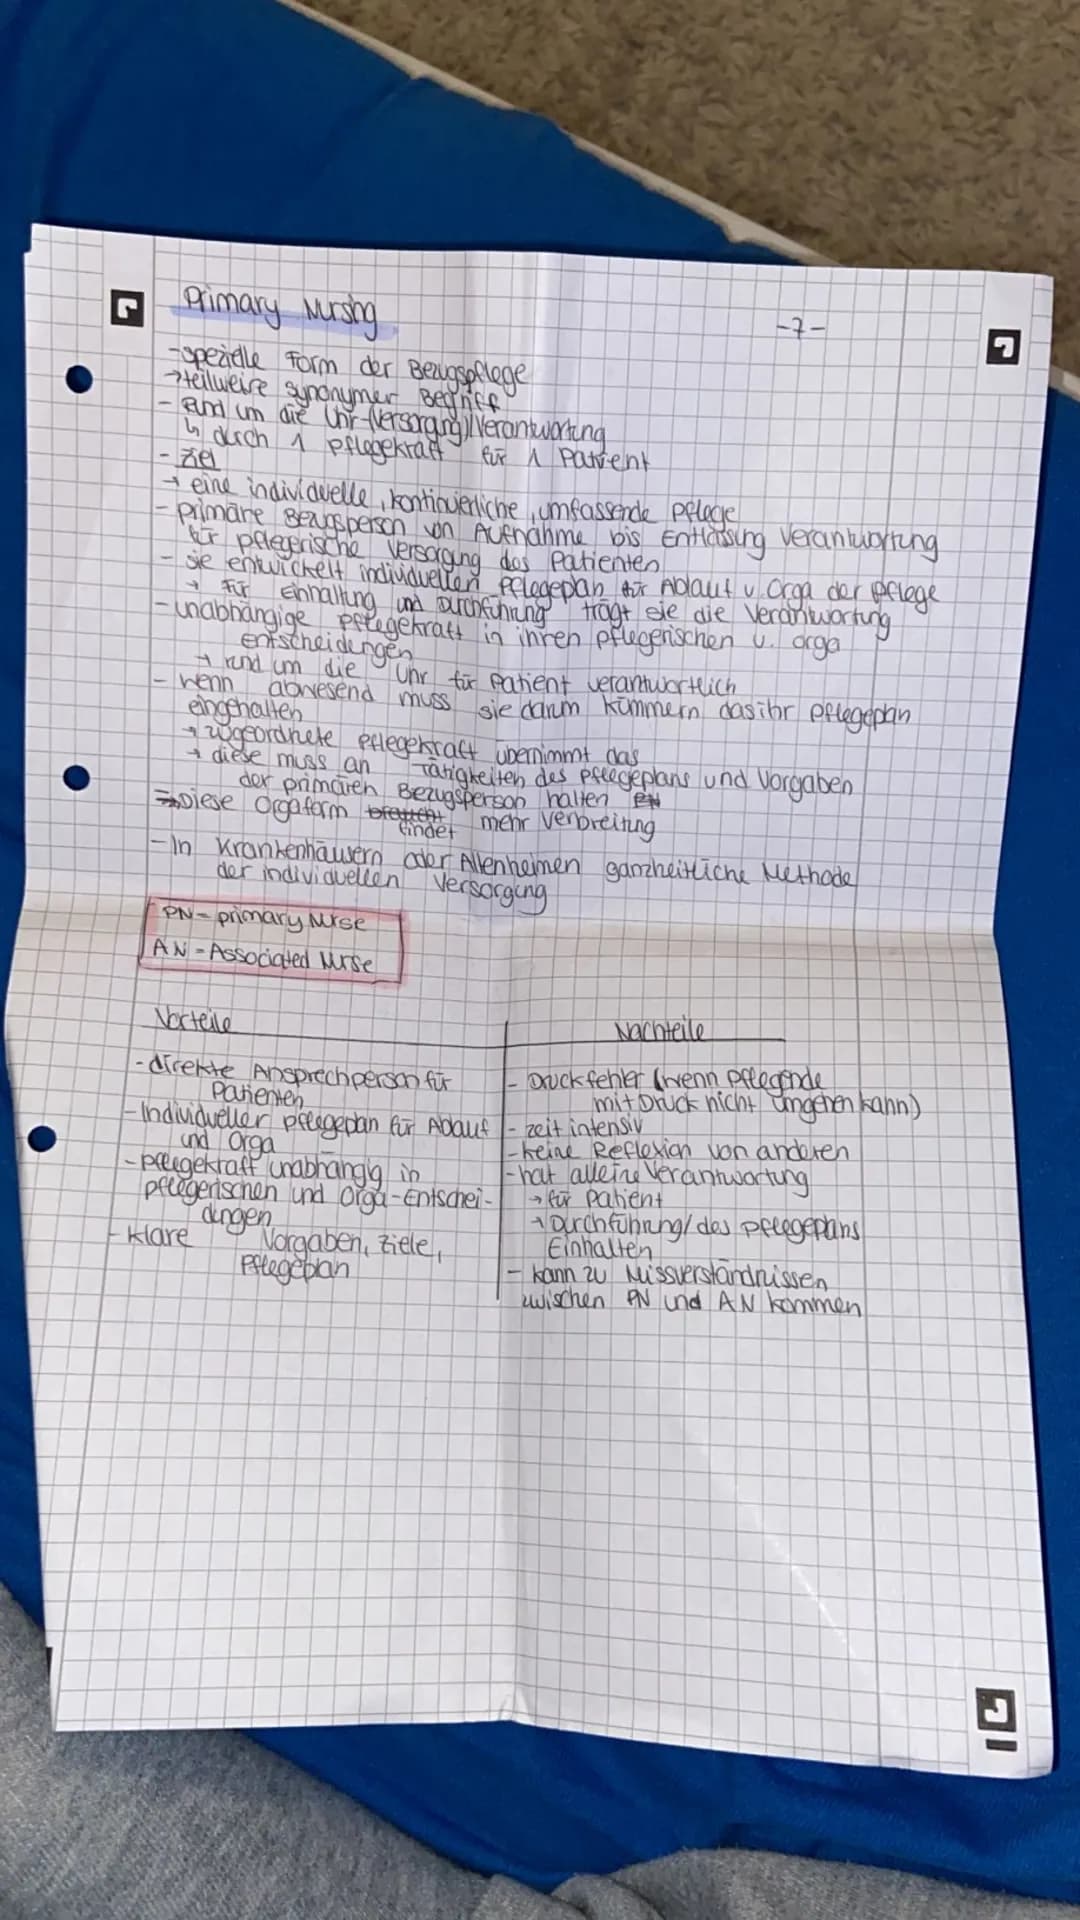 Primary Nursing
-7-
- spezielle Form der Bezugspflege
→ teilweise synonymer Begriff
- Rund um die Uhr-(Versorgung)/Verantwortung
↳ durch 1 Pflegekraft für 1 Patient
- Ziel
→ eine individuelle, kontinuierliche, umfassende Pflege
- primäre Bezugsperson von Aufnahme bis Entlassung Verantwortung
für pflegerische Versorgung des Patienten
- sie entwickelt individuellen Pflegeplan für Ablauf u. Orga der Pflege
→ Für Einhaltung und Durchführung trägt sie die Verantwortung
- unabhängige Pflegekraft in ihren pflegerischen u. orga
entscheidungen
→ rund um die Uhr für Patient verantwortlich
- wenn abwesend muss sie darum kümmern, das ihr Pflegeplan
eingehalten
→ zugeordnete Pflegekraft übernimmt das
→ diese muss an Tätigkeiten des Pflegeplans und Vorgaben
der primären Bezugsperson halten
⇒ Diese Orgaform findet mehr Verbreitung
- In Krankenhäusern oder Altenheimen ganzheitliche Methode
der individuellen Versorgung
PN - primary Nurse
AN - Associated Nurse
Vorteile
- direkte Ansprechperson für
Patienten
- Individueller Pflegeplan für Ablauf
und Orga
- Pflegekraft unabhängig in
pflegerischen und Orga-Entschei-
dungen
- klare Vorgaben, Ziele,
Pflegeplan
Nachteile
- Druckfehler (wenn Pflegende
mit Druck nicht umgehen kann)
- zeit intensiv
- keine Reflexion von anderen
- hat alleine Verantwortung
→ für Patient
→ Durchführung/ des Pflegeplans
Einhalten
- kann zu Missverständnissen
zwischen PN und AN kommen